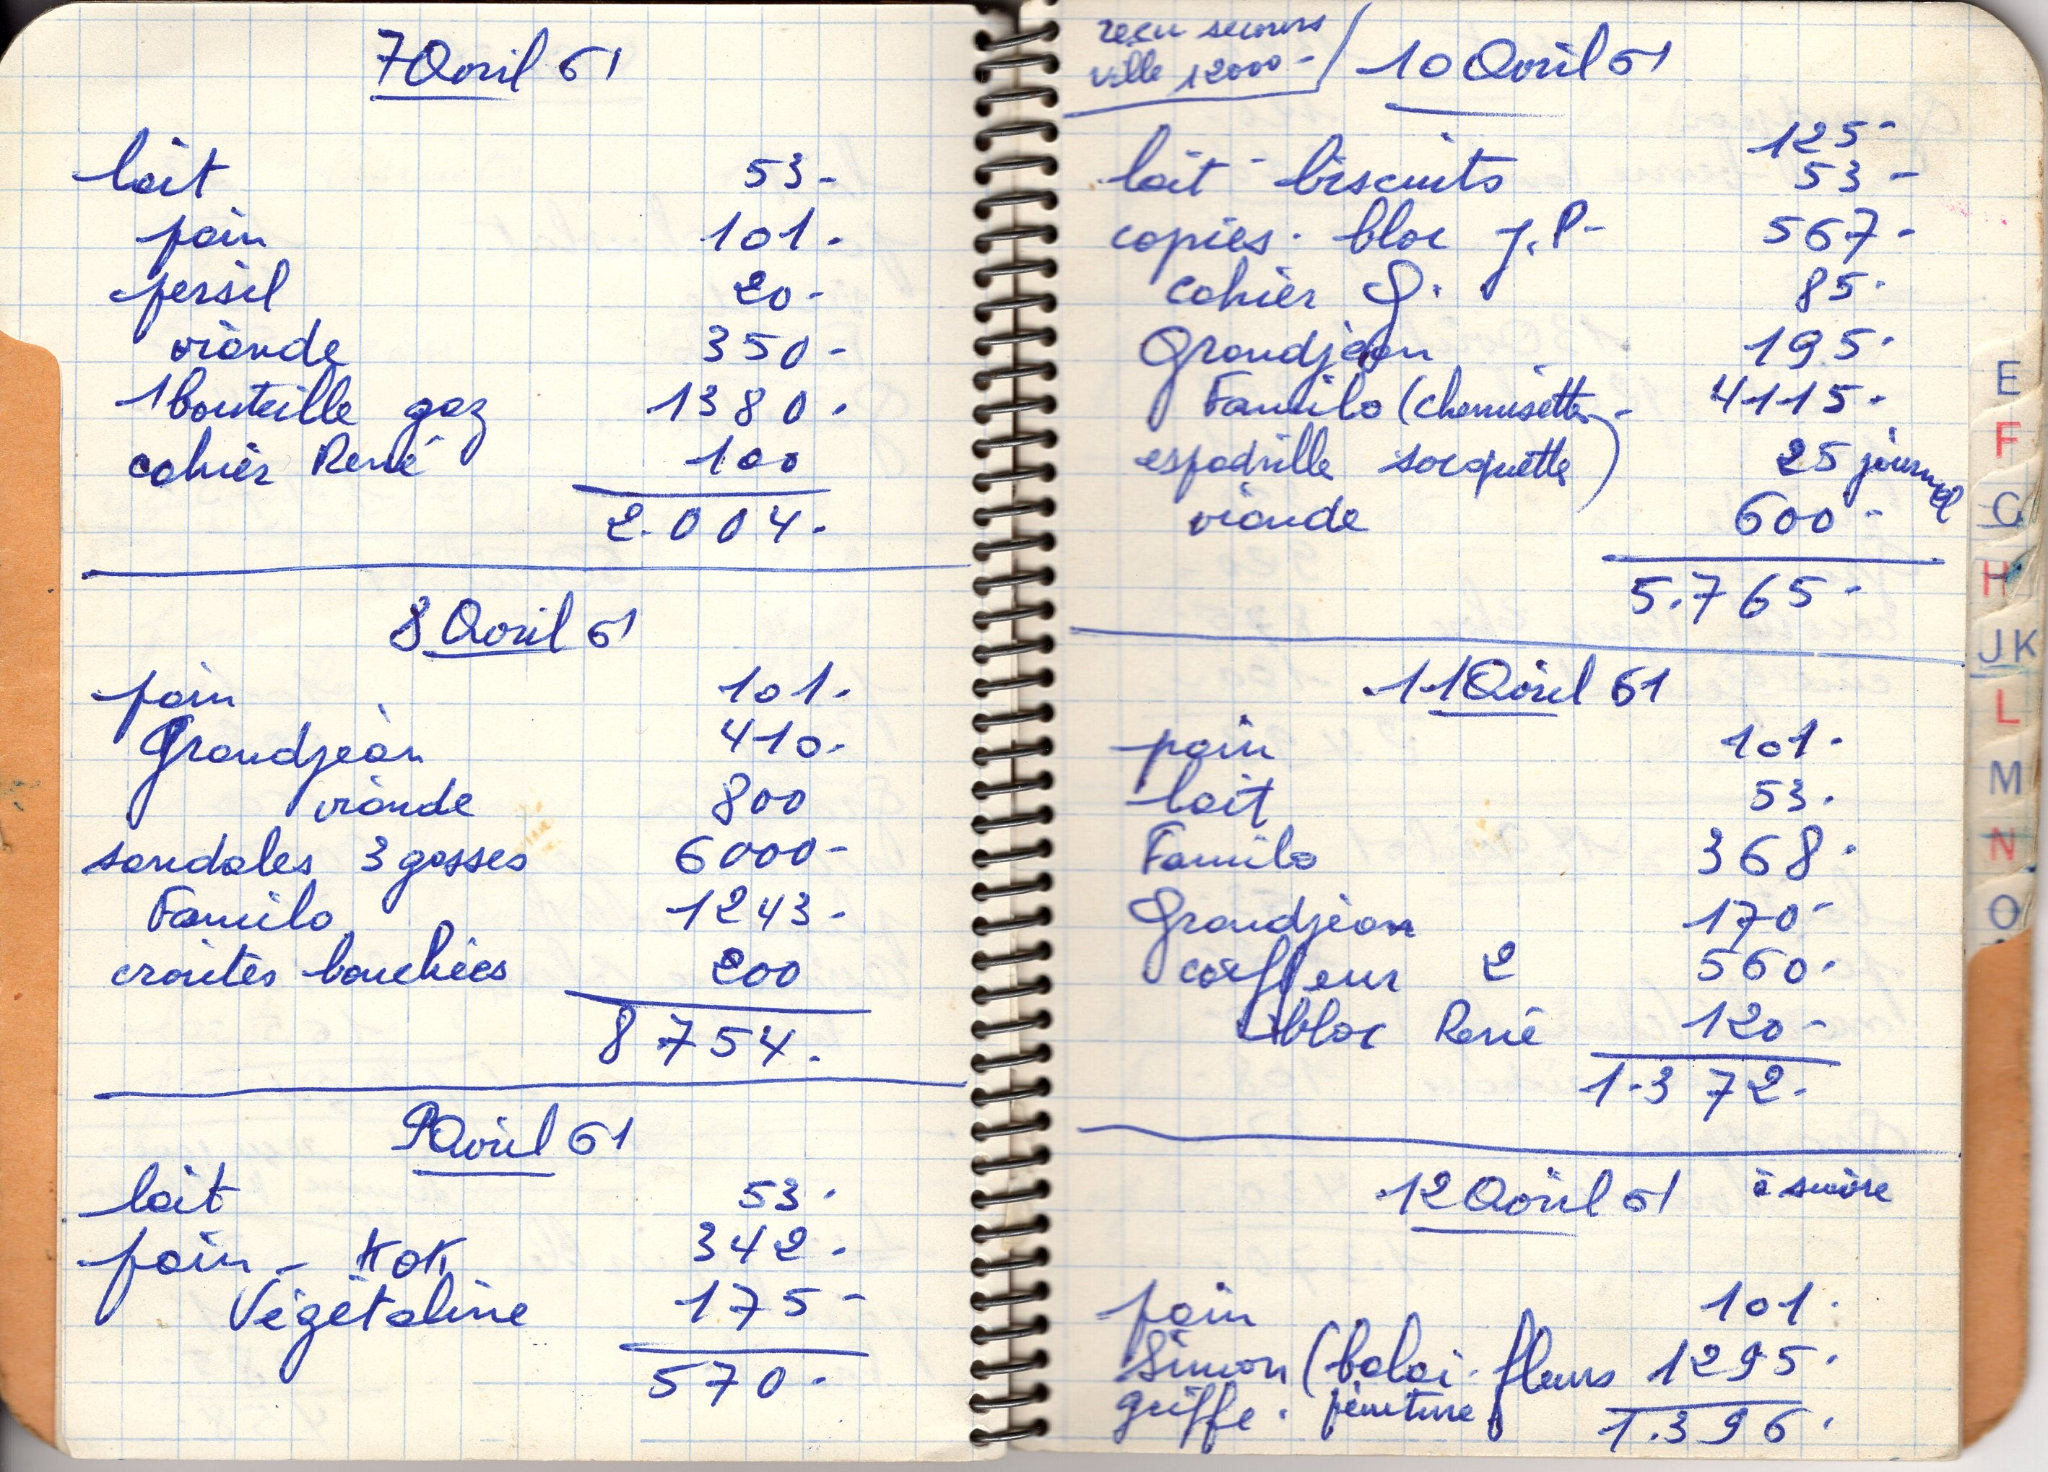 7 Avril 61
lait 53-
pain 101.
persil 20-
viande 350-
1 bouteille gaz 1380.
cahier René 100
2.004.
8 Avril 61
pain 101.
Grandjean 410.
viande 800
sandales 3 gosses 6000-
Familo 1243.
croûtes bouchées 200
8754.
9 Avril 61
lait 53.
pain - KOK 342.
Végétaline 175-
570.
reçu secours
ville 12000-
10 Avril 61
125-
lait - biscuits 53-
copies. bloc J.P- 567-
cahier G. 85.
Grandjean 195.
Familo (chemisette- 4115.
espadrille socquette) 25 journal
viande 600-
5.765-
11 Avril 61
pain 101.
lait 53.
Familo 368.
Grandjean 170-
coiffeur 2 560.
bloc René 120-
1.372.
12 Avril 61 à suivre
pain 101.
Simon (balai. fleurs 1295.
griffe. peinture
1.396.
E
F
G
H
JK
L
M
N
O